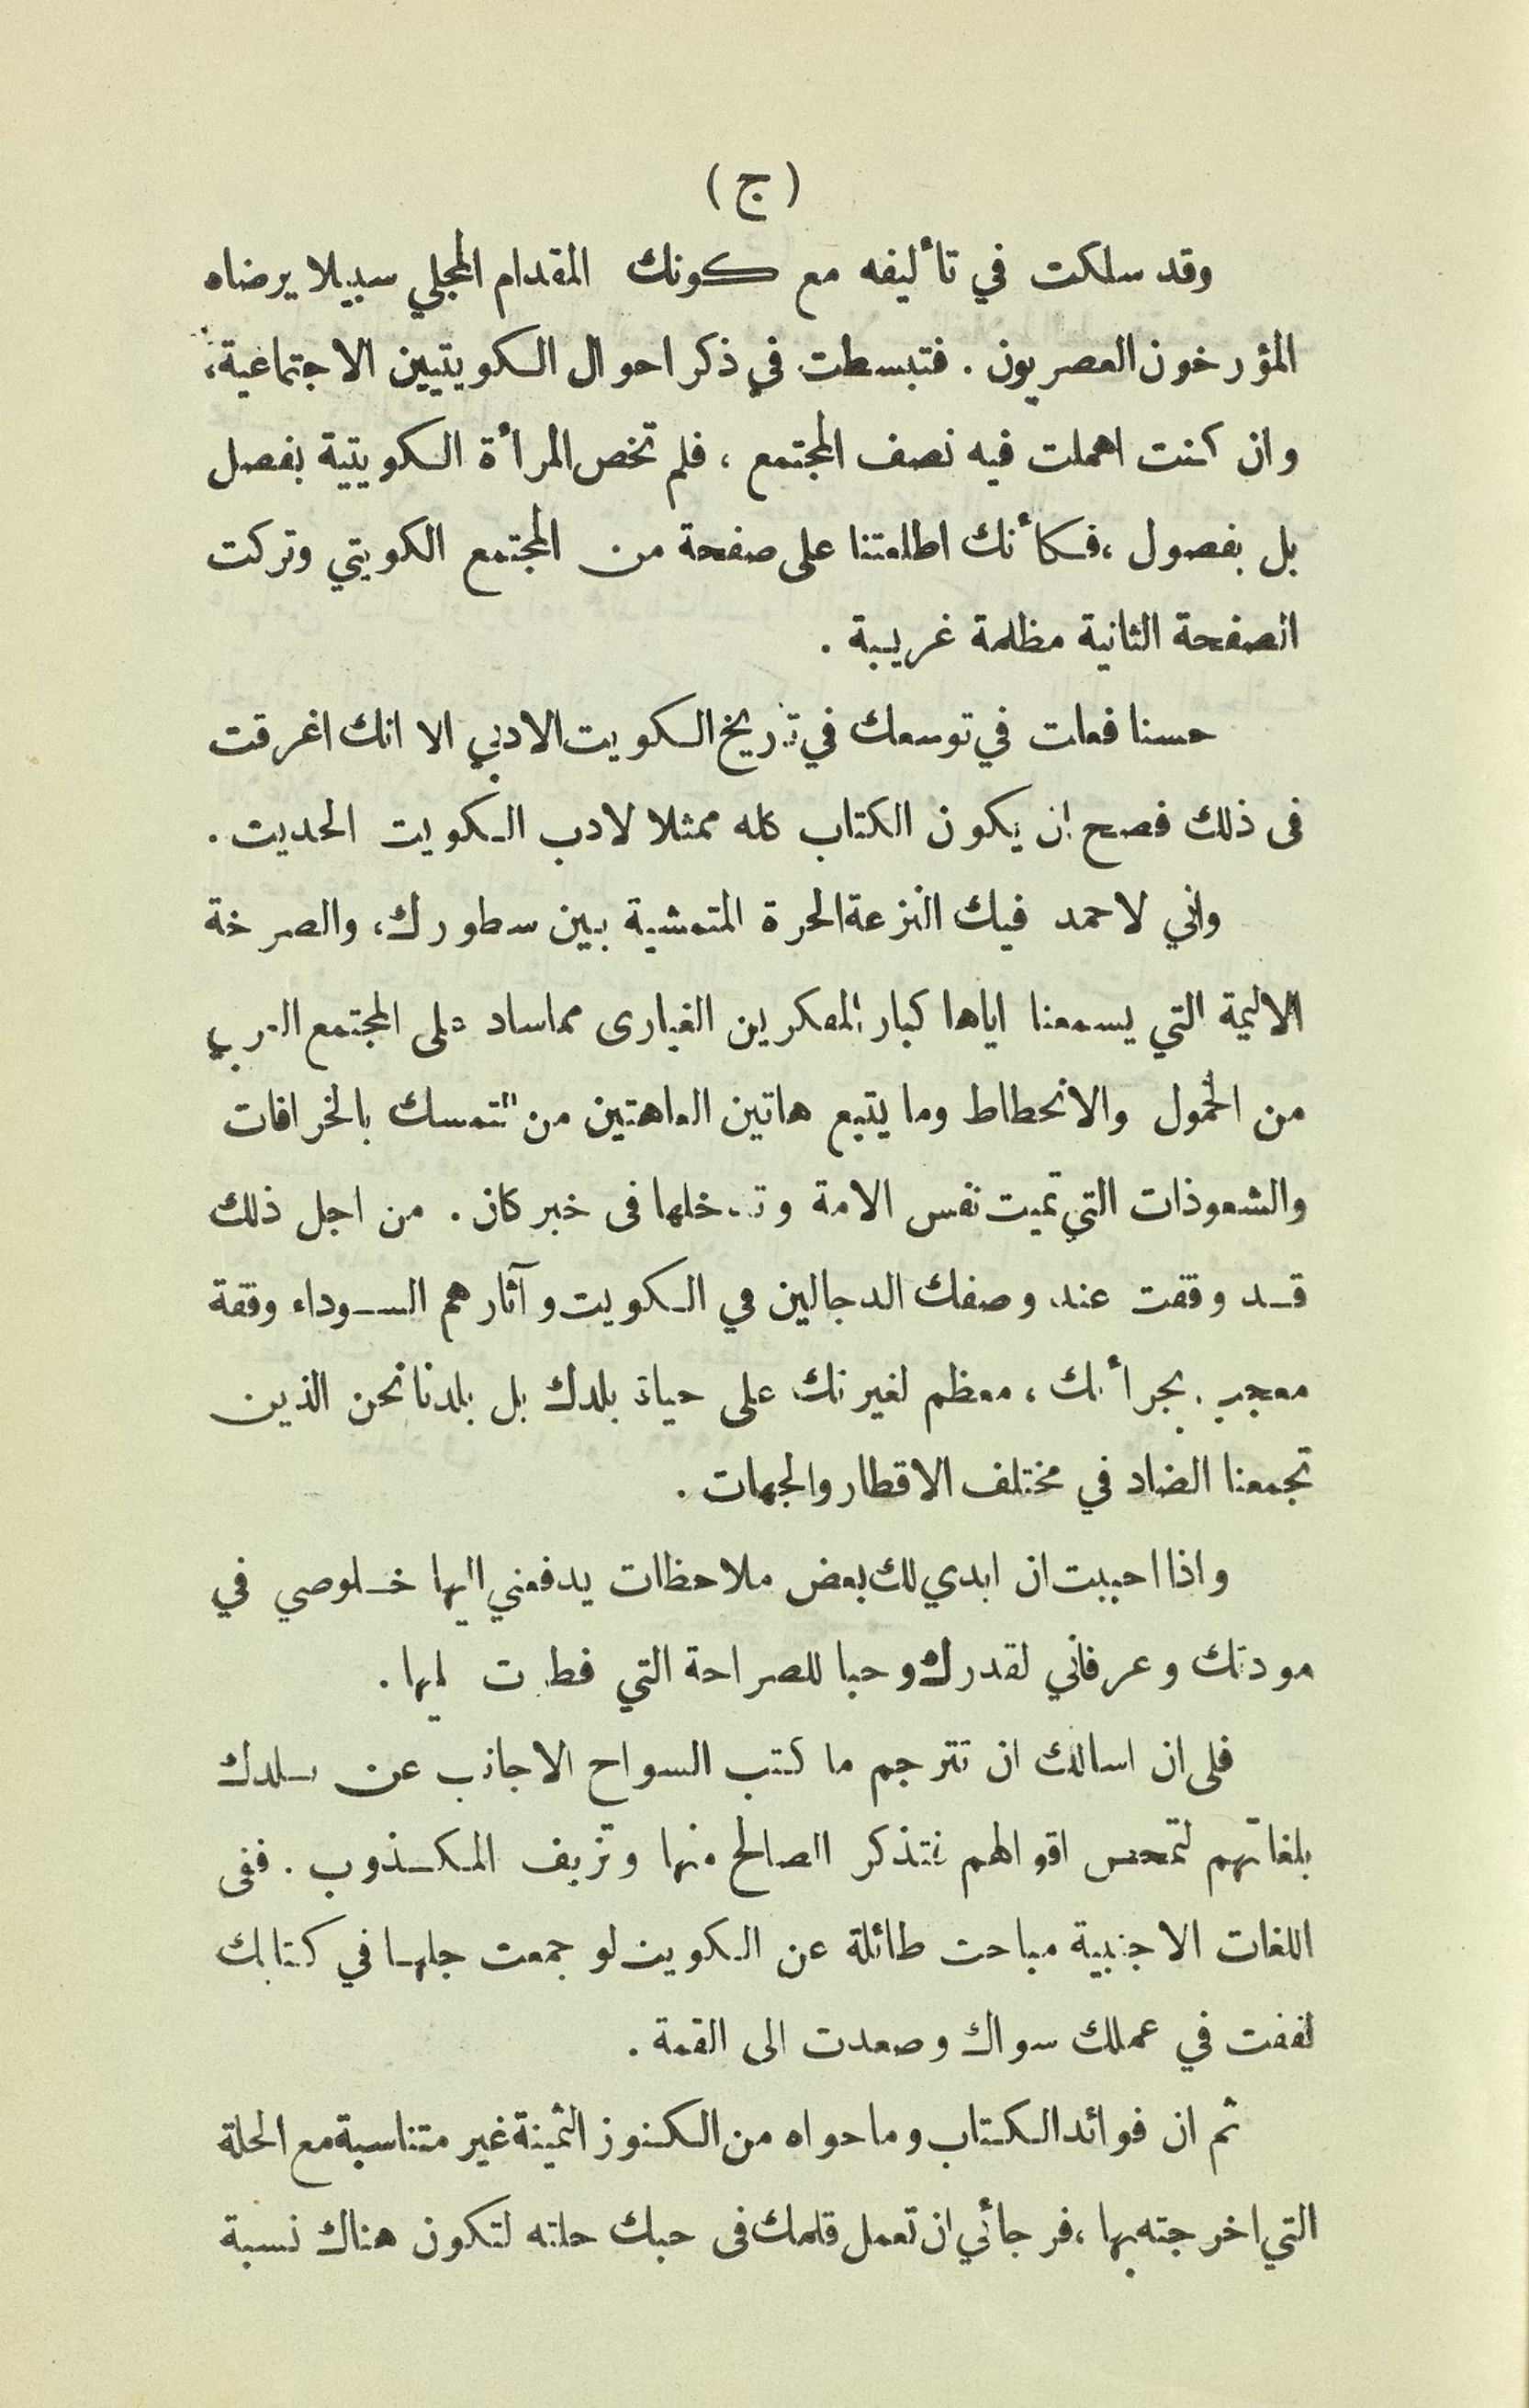 ( ج )
وقد سلكت في تأليفه مع كونك المقدام المجلي سبيلا يرضاه
المؤرخون العصريون . فتبسطت في ذكر احوال الكويتيين الاجتماعية،
وان كنت اهملت فيه نصف المجتمع ، فلم تخص المرأة الكويتية بفصل
بل بفصول ، فكأنك اطلعتنا على صفحة من المجتمع الكويتي وتركت
الصفحة الثانية مظلمة غريبة .
حسنا فعلت في توسعك في تاريخ الكويت الادبي الا انك اغرقت
فى ذلك فصح ان يكون الكتاب كله ممثلا لادب الكويت الحديث .
واني لاحمد فيك النزعة الحرة المتمشية بين سطورك، والصرخة
الاليمة التي يسمعنا اياها كبار المفكرين الغيارى مماساد على المجتمع العربي
من الخمول والانحطاط وما يتبع هاتين العاهتين من التمسك بالخرافات
والشعوذات التي تميت نفس الامة وتدخلها فى خبر كان . من اجل ذلك
قد وقفت عند وصفك الدجالين في الكويت وآثارهم السوداء وقفة
معجب بجرأتك ، معظم لغيرتك على حياة بلدك بل بلدنا نحن الذين
تجمعنا الضاد في مختلف الاقطار والجهات .
واذا احببت ان ابدي لك بعض ملاحظات يدفعني اليها خلوصي في
مودتك وعرفاني لقدرك وحبا للصراحة التي فطرت
فلى ان اسالك ان تترجم ما كتب السواح الاجانب عن بلدك
بلغاتهم لتمحص اقوالهم فتذكر الصالح منها وتزيف المكذوب . ففى
اللغات الاجنبية مباحث طائلة عن الكويت لو جمعت جلها في كتابك
لففت في عملك سواك وصعدت الى القمة .
ثم ان فوائد الكتاب وما حواه من الكنوز الثمينة غير متناسبة مع الحلة
التي اخرجته بها ، فرجائي ان تعمل قلمك فى حبك حلته لتكون هناك نسبة